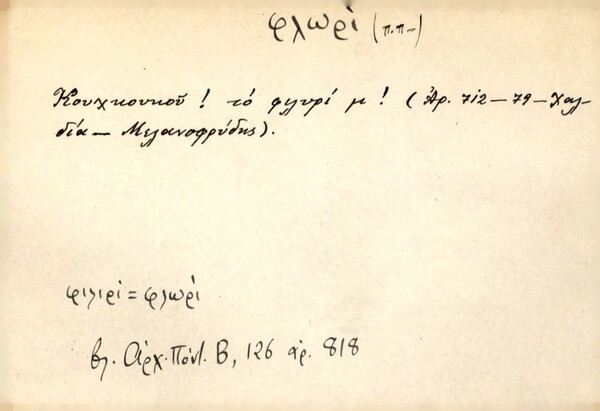 φλωρί (π.π-)
Κουχκουκοῦ! τό φιλυρί μ! (Ἀρ. 712-79-Χαλ
δία - Μελανοφρύδης).
φιλιρί = φλωρί
βλ. Ἀρχ. Πόντ. Β, 126 ἀρ. 818